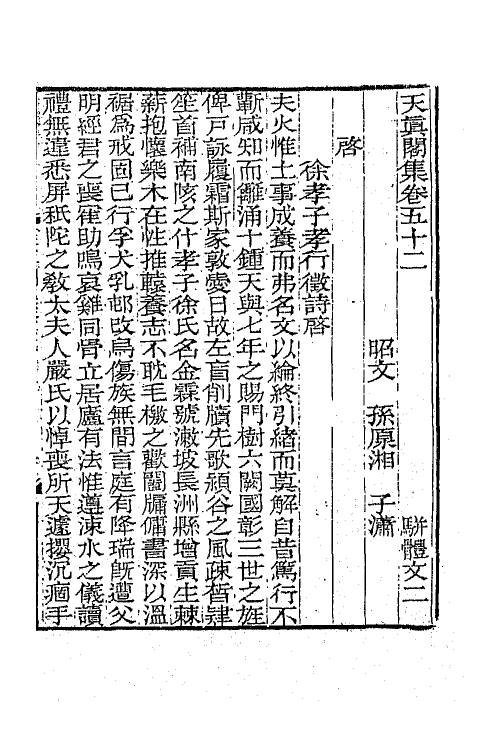 天真閣集卷五十二 駢體文二
昭文 孫原湘 子瀟
啓
徐孝子孝行徵詩啓
夫火惟土事成養而弗名文以綸終引緒而莫解自昔篤行不
蘄咸知而雛涌十鍾天與七年之賜門樹六闕國彰三世之旌
俾戸詠履霜斯家敦愛日故左盲削牘先歌潁谷之風疎皙肄
笙首補南陔之什孝子徐氏名金霖號澂坡長洲縣增貢生棘
薪抱懷樂木在性推轅養志不耽毛檄之歡闔牖傭書深以溫
裾為戒固已行孚犬乳邨改烏傷族無間言庭有降瑞旣遭父
明經君之喪崔助鳴哀雞同骨立居廬有法惟遵涑水之儀讀
禮無違悉屏秖陀之敎太夫人嚴氏以悼喪所天遽攖沉痼手